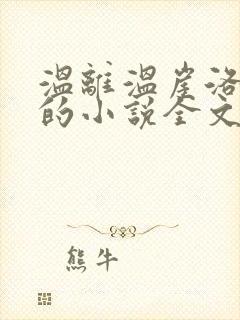 溫離溫崖洛
的小說全文
熊牛